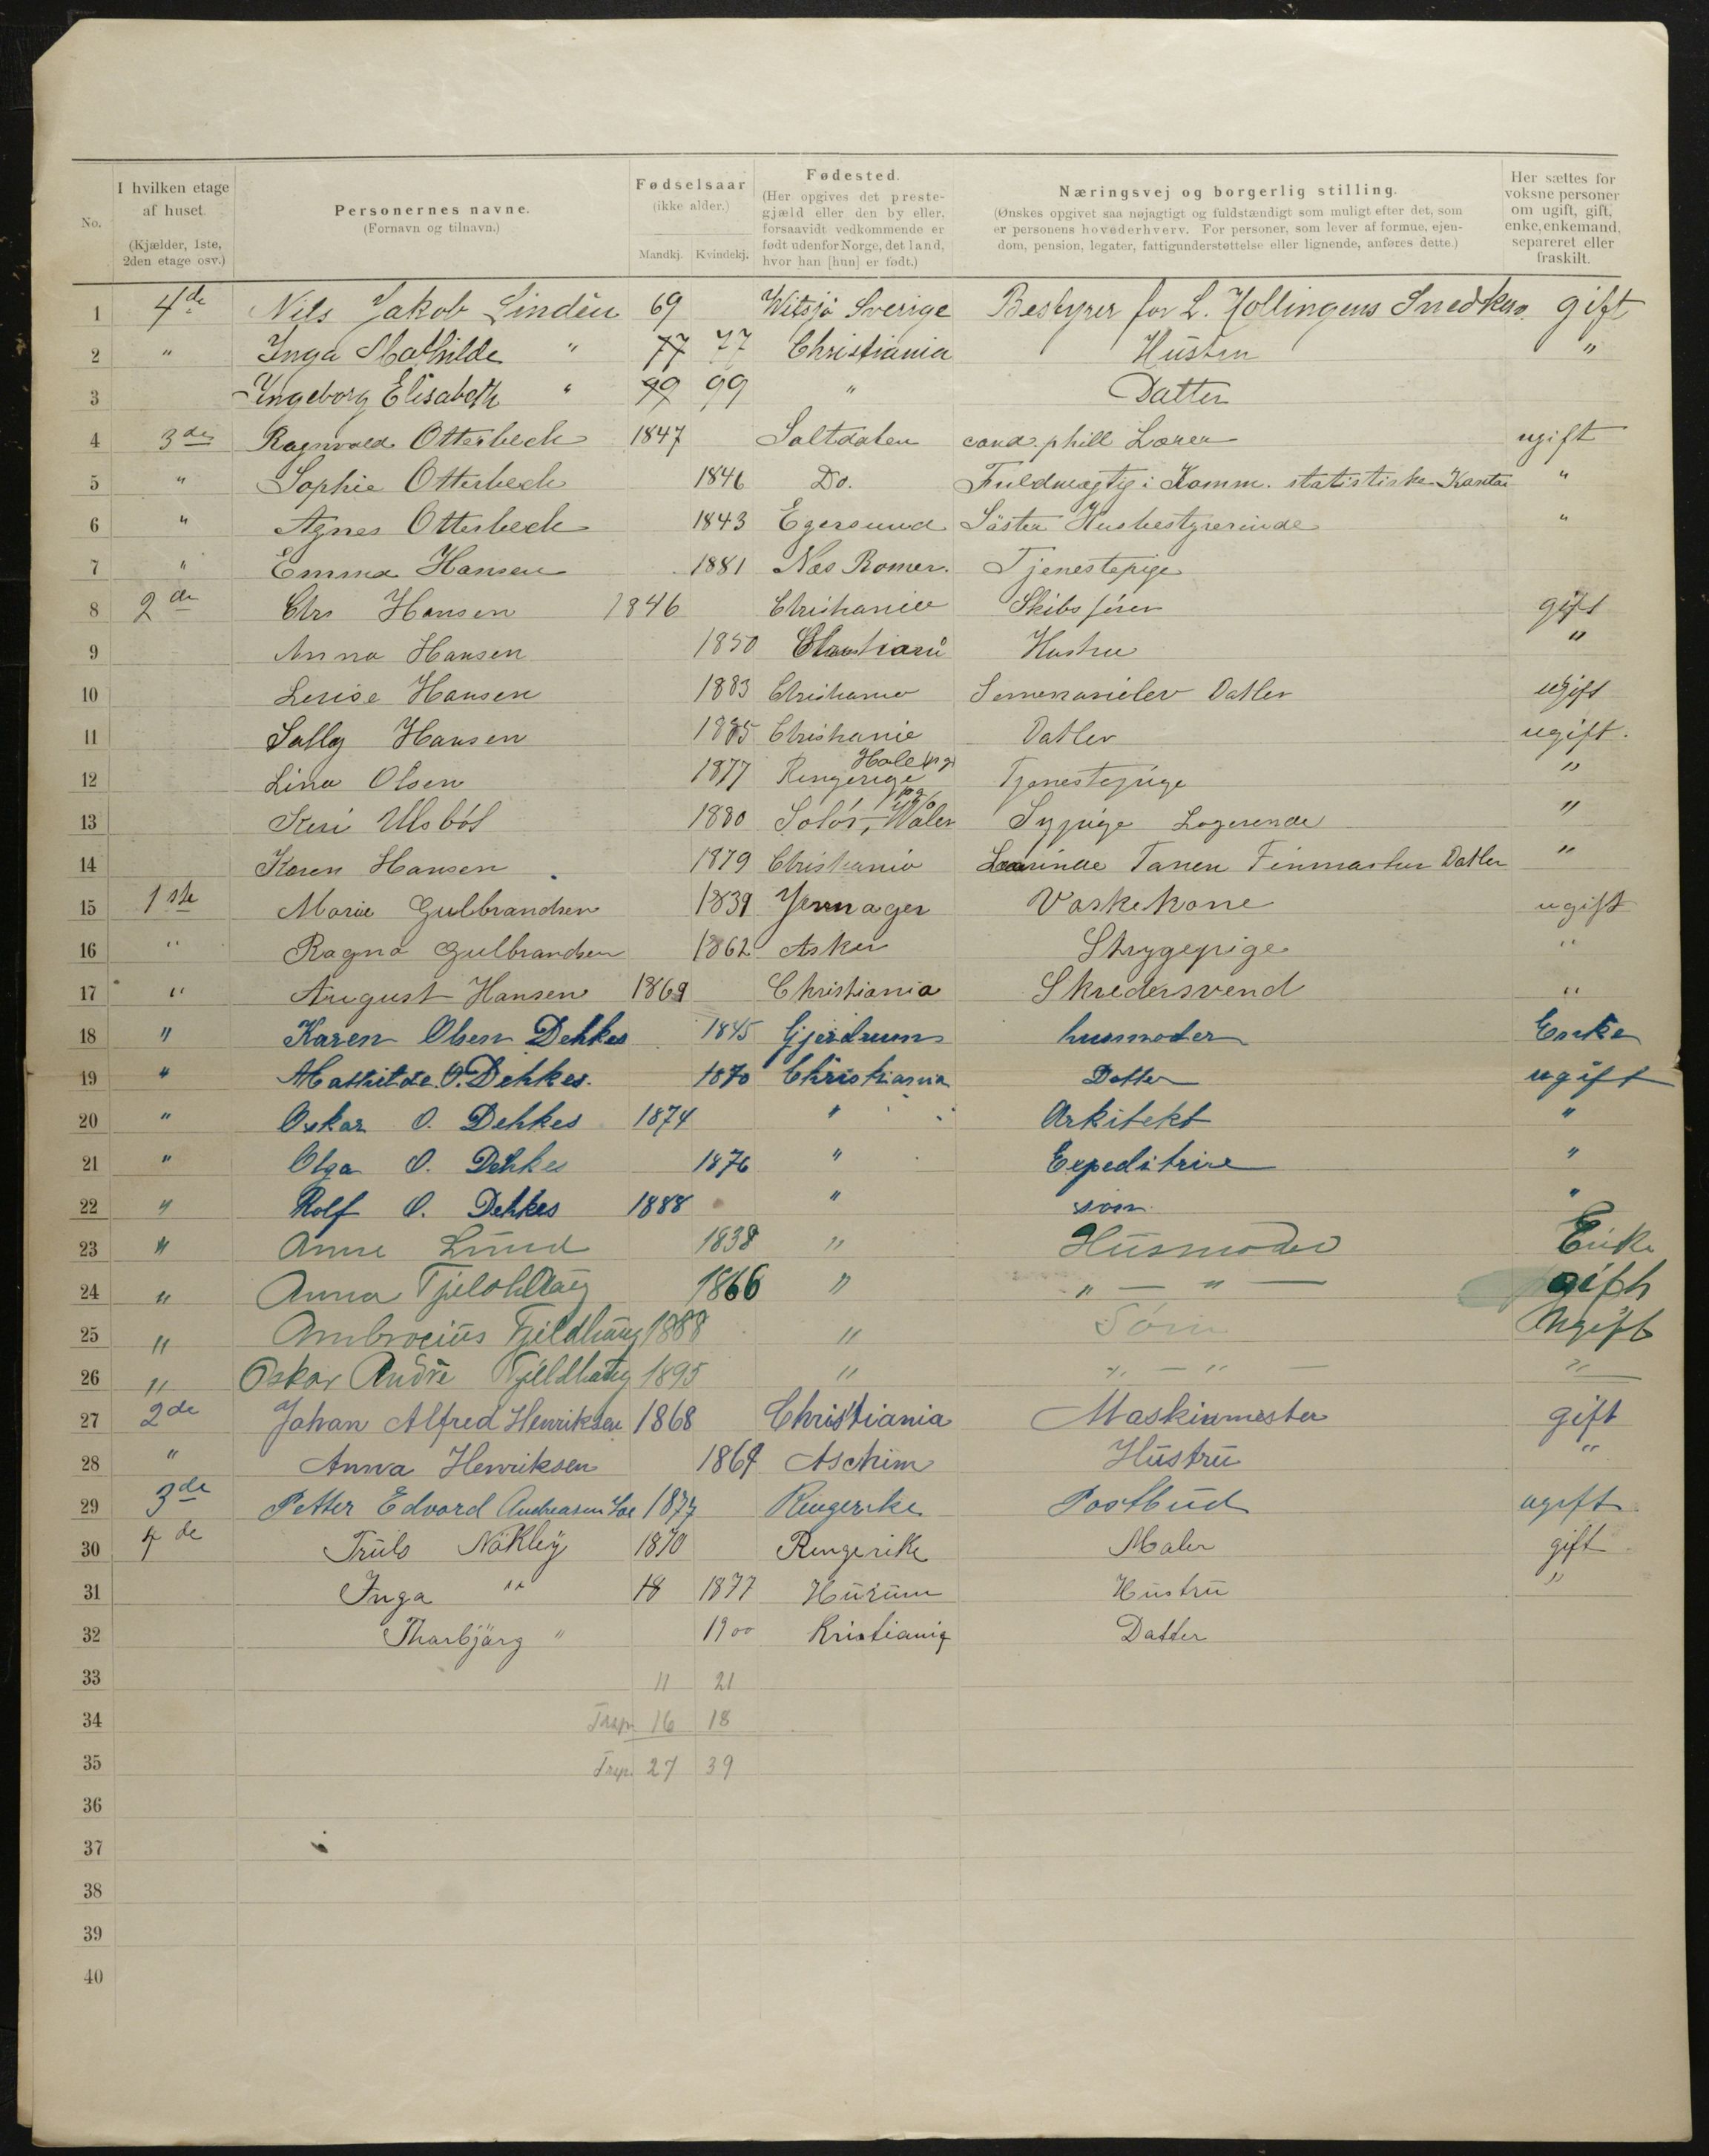 No. I hvilken etage af huset. (Kjælder, 1ste, 2den etage osv.) Personernes navne. (Fornavn og tilnavn.) Fødselsaar (ikke alder.) Mandkj. Kvindekj. Fødested. (Her opgives det prestegjæld eller den by eller, forsaavidt vedkommende er født udenfor Norge, det land, hvor han [hun] er født.) Næringsvej og borgerlig stilling. (Ønskes opgivet saa nøjagtigt og fuldstændigt som muligt efter det, som er personens hovederhverv. For personer, som lever af formue, ejendom, pension, legater, fattigunderstøttelse eller lignende, anføres dette.) Her sættes for voksne personer om ugift, gift, enke, enkemand, separeret eller fraskilt.
1 4de Nils Jakob Lindèn 69 Witsjö Sverige Bestyrer for L. Hollingens Snedkers. gift
2 " Inga Mathilde " 77 77 Christiania Hustru "
3 Ingeborg Elisabeth " 99 99 " Datter
4 3de Ragnvald Otterbech 1847 Saltdalen cand. phill Lærer ugift
5 " Sophie Otterbech 1846 Do. Fuldmægtig i Komm. statistiske Kontor "
6 " Agnes Otterbech 1843 Egersund Søster Husbestyrerinde "
7 " Emma Hansen 1881 Næs Romer. Tjenestepige
8 2de Chr Hansen 1846 Christiania Skibsfører gift
9 Anna Hansen 1850 Christiania Hustru "
10 Lovise Hansen 1883 Christiania Seminarielev Datter ugift
11 Sally Hansen 1885 Christiania Datter ugift.
12 Lina Olsen 1877 Ringerige Hole Tjenestepige "
13 Keri Ulsböl 1880 Solör, Våler Sypige Logerende "
14 Karen Hansen 1879 Christiania Lærinde Tanen Finmarken Datter "
15 1ste Marie Gulbrandsen 1839 Jevnager Vaskekone ugift
16 " Ragna Gulbrandsen 1862 Asker Strygepige "
17 " August Hansen 1869 Christiania Skredersvend "
18 " Karen Olsen Dehkes 1845 Gjerdrum husmoder Enke
19 " Mathilde O. Dehkes. 1870 Christiania Datter ugift
20 " Oskar O. Dehkes 1874 " Arkitekt "
21 " Olga O. Dehkes 1876 " Expeditrise "
22 " Rolf O. Dehkes 1888 " søn "
23 " Anne Lund 1838 " Husmoder Enke
24 " Anna Fjeldhaug 1866 " " — " — gift
25 " Ambrocius Fjeldhaug 1888 " Sön Ungift
26 " Oskar Andre Fjeldhaug 1895 " " — " — "
27 2de Johan Alfred Henriksen 1868 Christiania Maskinmester gift
28 " Anna Henriksen 1869 Aschim Hustru "
29 3de Petter Edvard Andreasen Loe 1877 Ringerike Postbud ugift
30 4de Truls Nökleÿ 1870 Ringerike Maler gift
31 Inga " 18 1877 Hurum Hustru "
32 Thorbjørg " 1900 Kristiania Datter
33 11 21
34 Trsp. 16 18
35 Trsp. 27 39
36
37
38
39
40